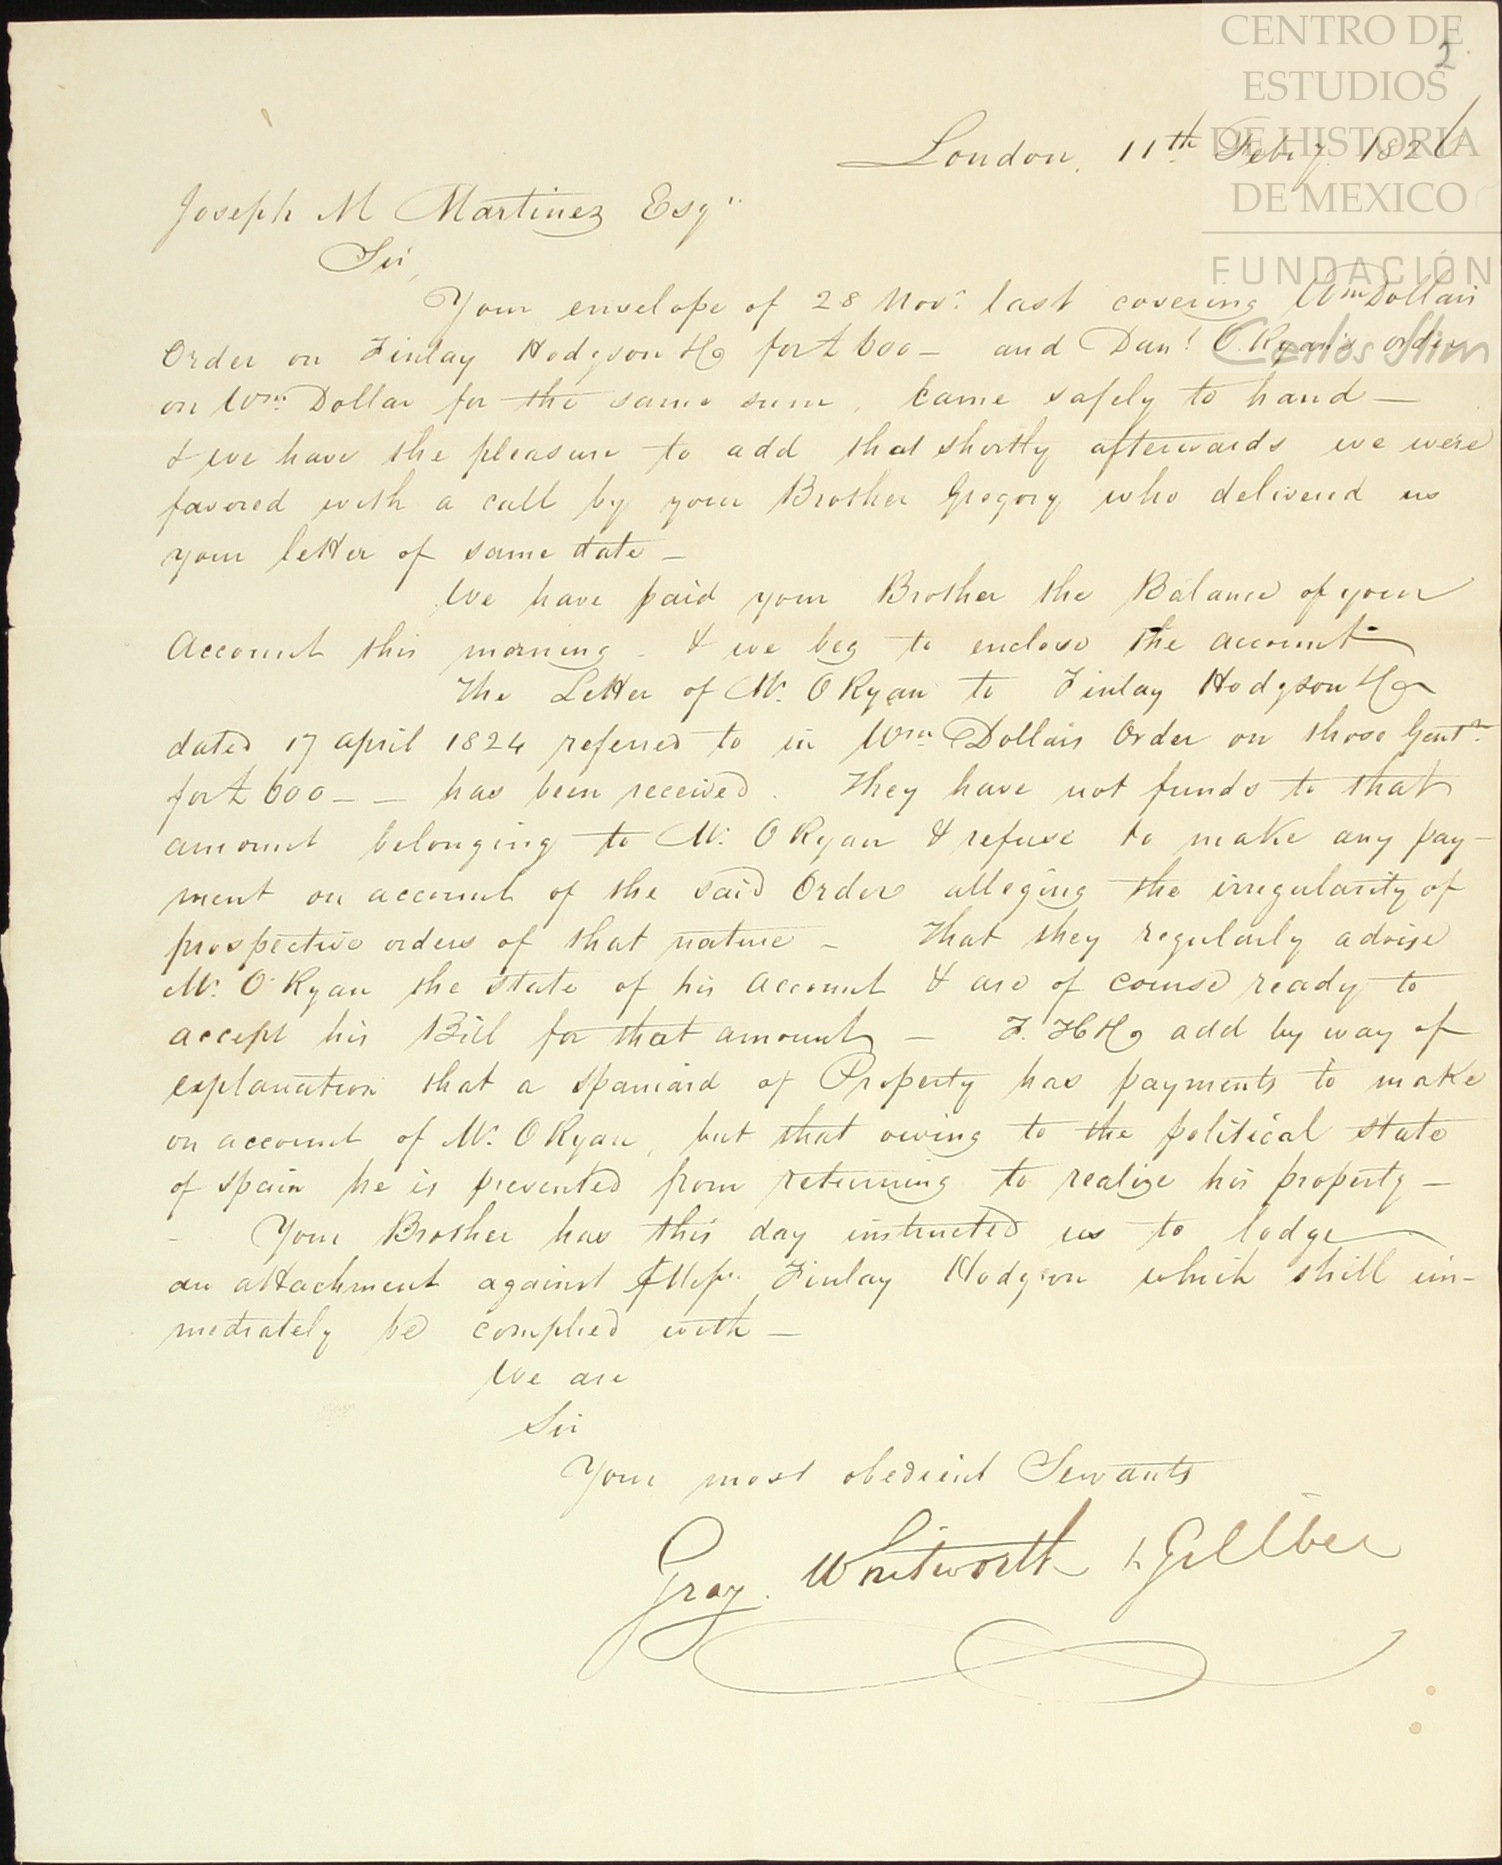 CENTRO DE
2.
ESTUDIOS
DE HISTORIA
DE MEXICO
FUNDACIÓN
Carlos Slim
London, 11th Feby. 1826
Joseph M Martinez Esqr
Sir,
Your envelope of 28 Novr. last covering Wm Dollars
Order on Finlay Hodgson & Co for £600 – and Danl. O'Ryan's order
on Wm. Dollar for the same sum, came safely to hand –
& we have the pleasure to add that shortly afterwards we were
favored with a call by your Brother Gregory who delivered us
your letter of same date –
We have paid your Brother the Balance of your
Account this morning – & we beg to enclose the account
The Letter of Mr. O Ryan to Finlay Hodgson & Co
dated 17 April 1824 referred to in Wm Dollars Order on those Gentn.
for £600 – – has been received. They have not funds to that
amount belonging to Mr. O Ryan & refuse to make any pay-
ment on account of the said Order alleging the irregularity of
prospective orders of that nature – That they regularly advise
Mr. O'Ryan the state of his account & are of course ready to
accept his Bill for that amount – F. H & Co add by way of
explanation that a Spaniard of Property has payments to make
on account of Mr. O Ryan, but that owing to the political state
of Spain he is prevented from returning to realize his property –
– Your Brother has this day instructed us to lodge
an attachment against Messrs. Finlay Hodgson which shall im-
mediately be complied with –
We are
Sir
Your most obedient Servants
Gray. Whitworth &